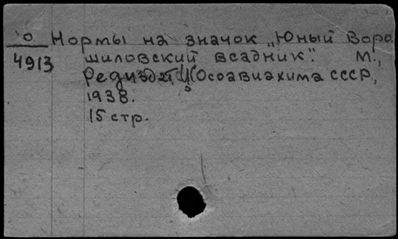 О Нормы на значок „Юный Воро
4913 шиловский всадник". М.,
Редиздат ЦС Осоавиахима СССР,
1938.
15 стр.